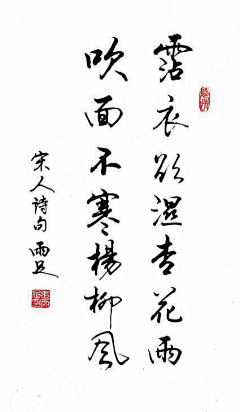 霑衣欲濕杏花雨
吹面不寒楊柳风
宋人诗句 雨足